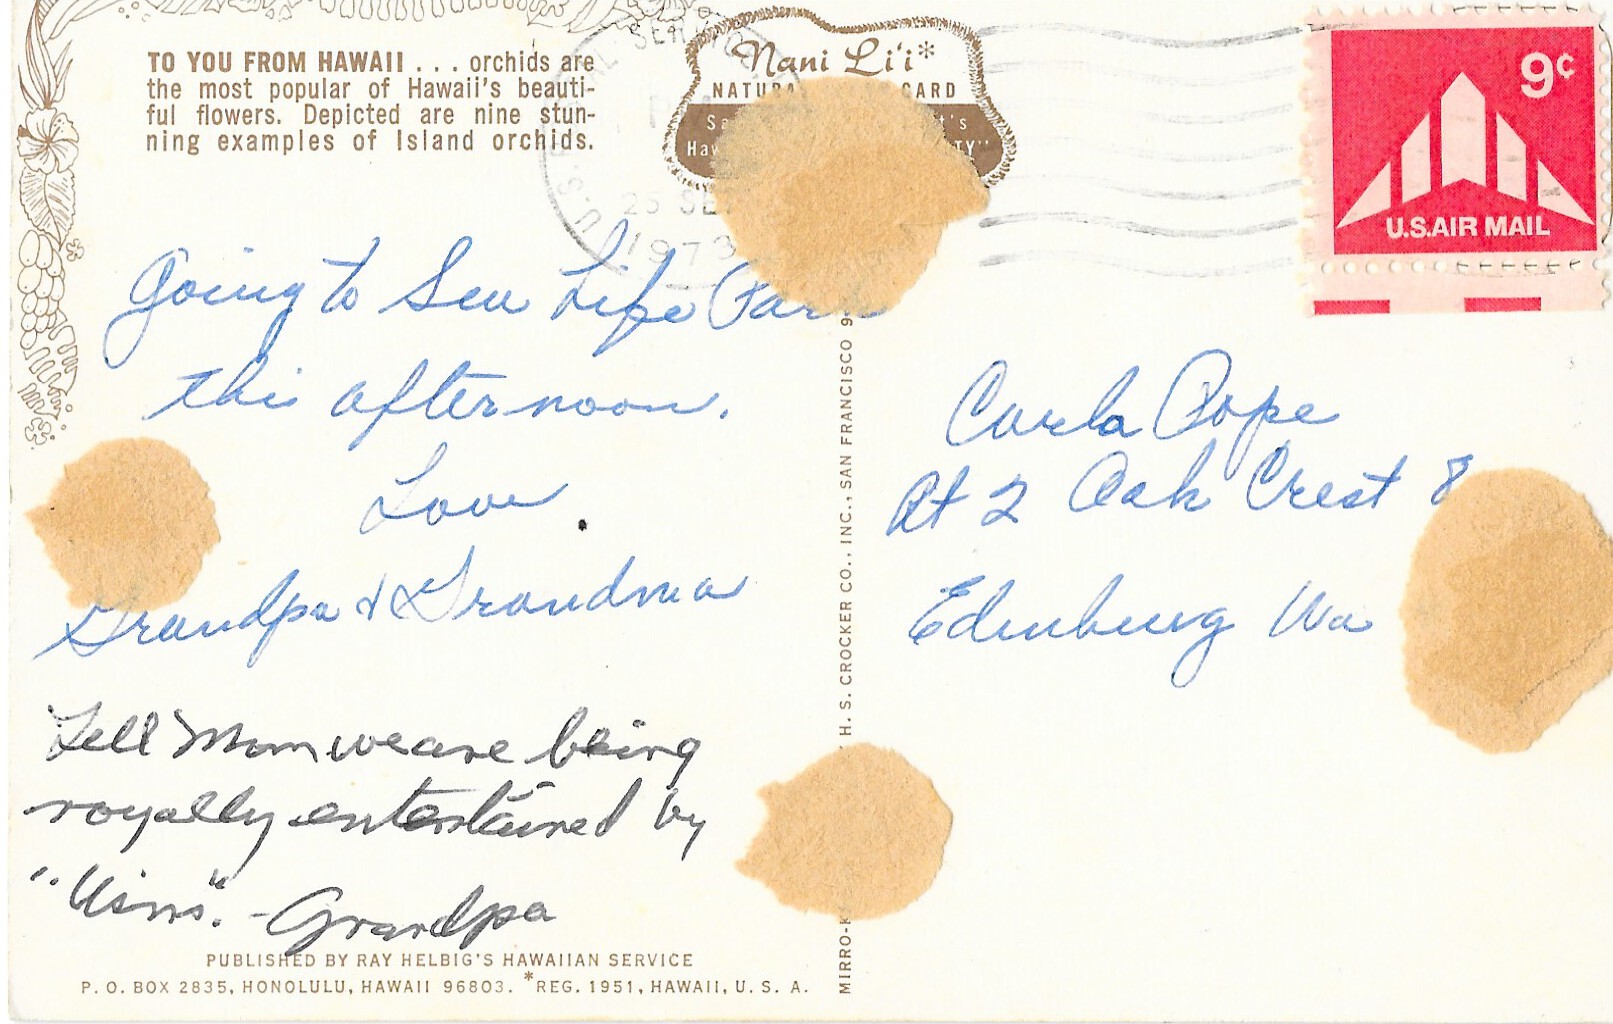 TO YOU FROM HAWAII . . . orchids are
the most popular of Hawaii's beauti-
ful flowers. Depicted are nine stun-
ning examples of Island orchids.
Nani Li'i*
CARD
U.S.
25 SE
1973
9¢
U.S. AIR MAIL
Going to Sea Life Park
this afternoon.
Love
Grandpa & Grandma
Tell Mom we are being
royally entertained by
-Grandpa
Carla Pope
Rt 2 Oak Crest 8
Edinburg Va
PUBLISHED BY RAY HELBIG'S HAWAIIAN SERVICE
P. O. BOX 2835, HONOLULU, HAWAII 96803. *REG. 1951, HAWAII, U. S. A.
H. S. CROCKER CO., INC., SAN FRANCISCO